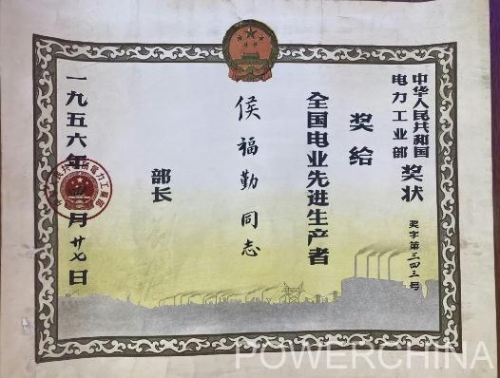 中华人民共和国
电力工业部 奖状
奖字第三四三号
奖给
全国电业先进生产者
侯福勤同志
部长
一九五六年 月廿七日
POWERCHINA